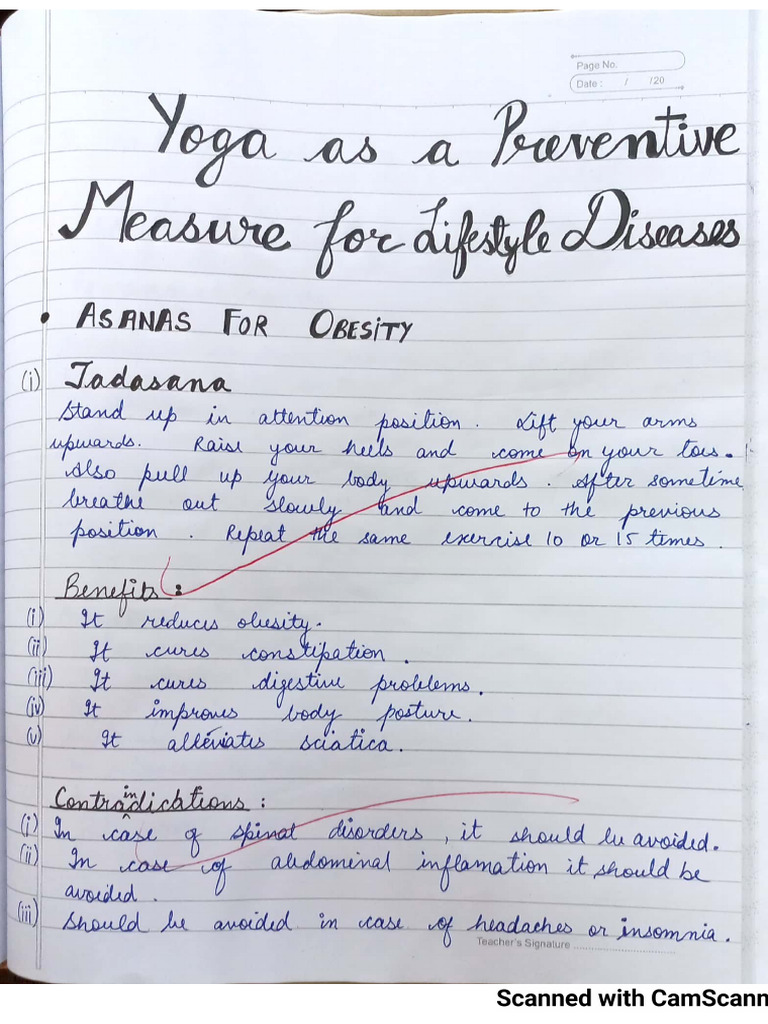 Page No.
Date : / /20
Yoga as a Preventive
Measure for Lifestyle Diseases
• ASANAS FOR OBESITY
(i) Tadasana
Stand up in attention position. Lift your arms
upwards. Raise your heels and come on your toes.
Also pull up your body upwards. After sometime
breathe out slowly and come to the previous
position. Repeat the same exercise 10 or 15 times.
Benefits :
(i) It reduces obesity.
(ii) It cures constipation.
(iii) It cures digestive problems.
(iv) It improves body posture.
(v) It alleviates sciatica.
Contraindications :
(i) In case of spinal disorders, it should be avoided.
(ii) In case of abdominal inflamation it should be
avoided.
(iii) Should be avoided in case of headaches or insomnia.
Teacher's Signature
Scanned with CamScann